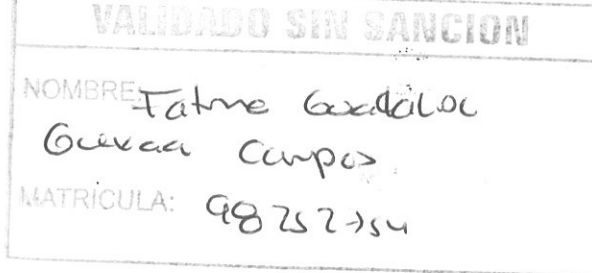 VALIDADO SIN SANCION
NOMBRE: Fatme Guadalupe
Guevara Campos
MATRICULA: 98252754